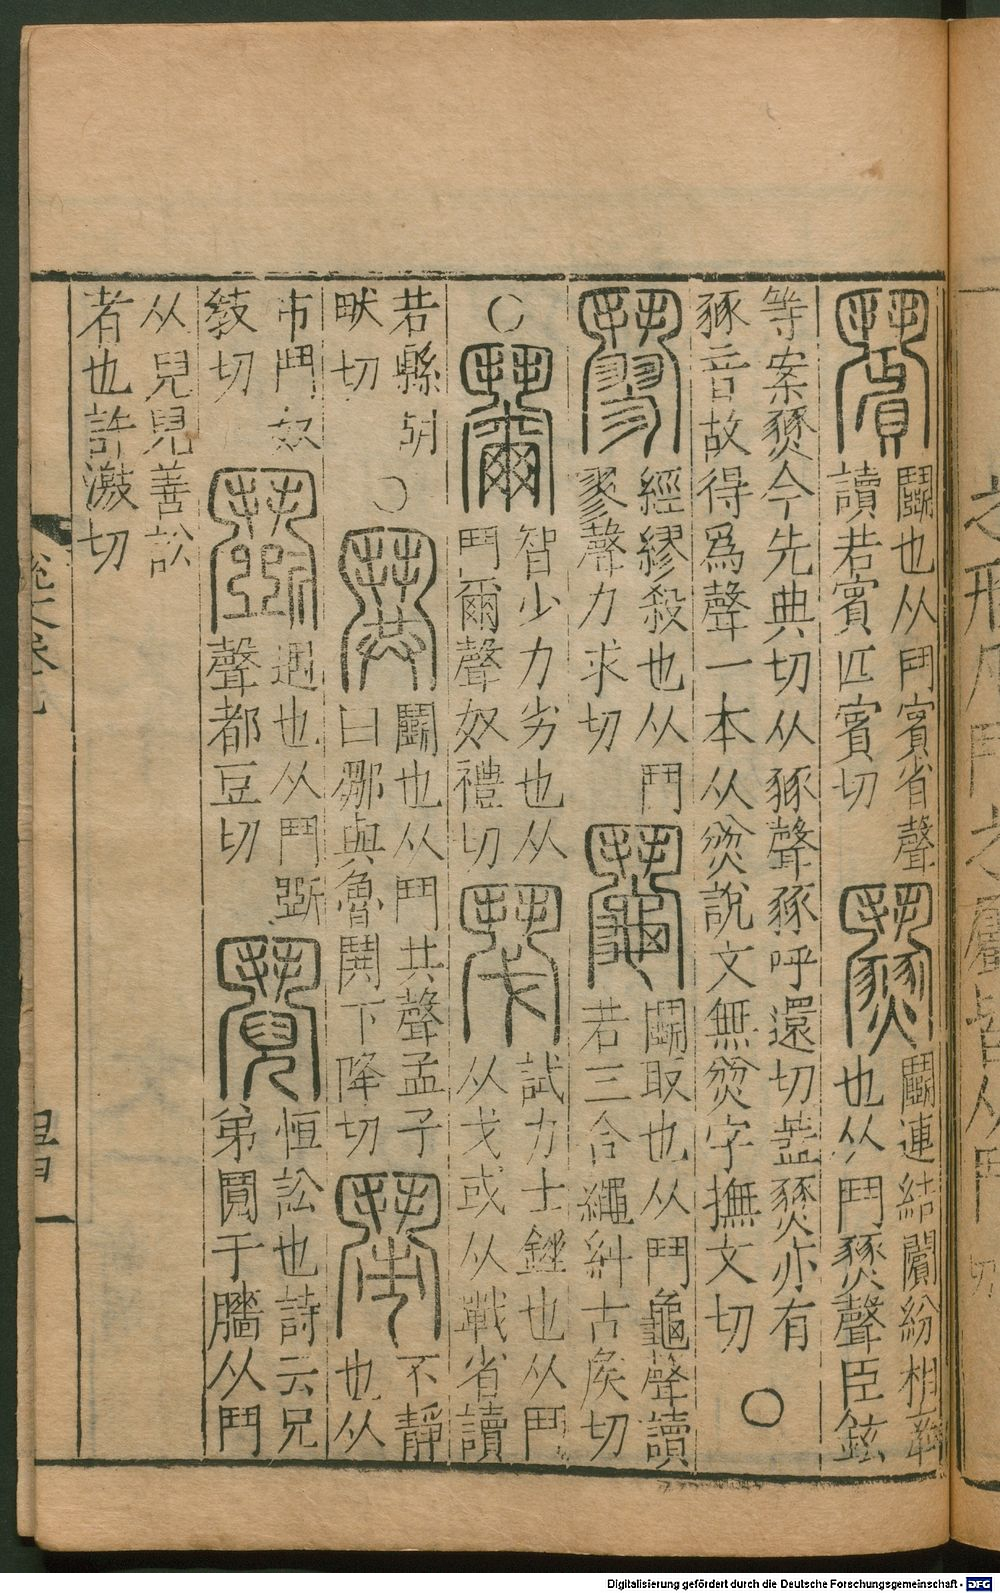 鬢鬭也从鬥賓省聲
讀若賓匹賓切
燹鬭連結闠紛相牽
也从鬥燹聲臣鉉
等案燹今先典切从豩聲豩呼還切葢燹亦有
豩音故得爲聲一本从焱說文無焱字撫文切
○
鬮經繆殺也从鬥
翏聲力求切
鬮鬭取也从鬥龜聲讀
若三合繩糾古矦切
○
鬫智少力劣也从
鬥爾聲奴禮切
試力士錘也从鬥
从戈或从戰省讀
若縣胡
畎切
○
鬨鬭也从鬥共聲孟子
曰鄒與魯鬨下降切
鬧不靜
也从
市鬥奴
敎切
遇也从鬥斲
聲都豆切
鬩恒訟也詩云兄
弟鬩于牆从鬥
从兒兒善訟
者也許激切
之形凡鬥之屬皆从鬥
切
說文卷七
Digitalisierung gefördert durch die Deutsche Forschungsgemeinschaft - DFG